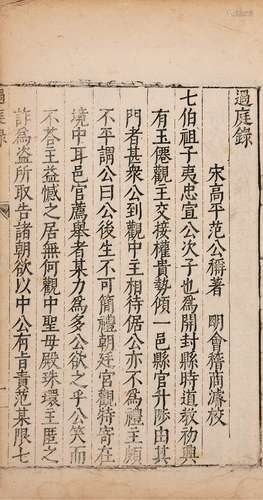 過庭錄
宋高平范公稱著 明會稽商濬校
七伯祖子夷忠宣公次子也為開封縣時道教初興
有玉僊觀王交接權貴勢傾一邑縣官升陟由其
門者甚衆公到觀中王相待倨公亦不為禮王頗
不平謂公曰公後生不可簡禮朝廷宮觀特寄在
境中耳邑官薦舉者某力為多公欲之乎公笑而
不荅王益憾之居無何觀中聖母殿珠環王匿之
詐為盜所取告諸朝欲以中公有旨責范某限七
過庭錄